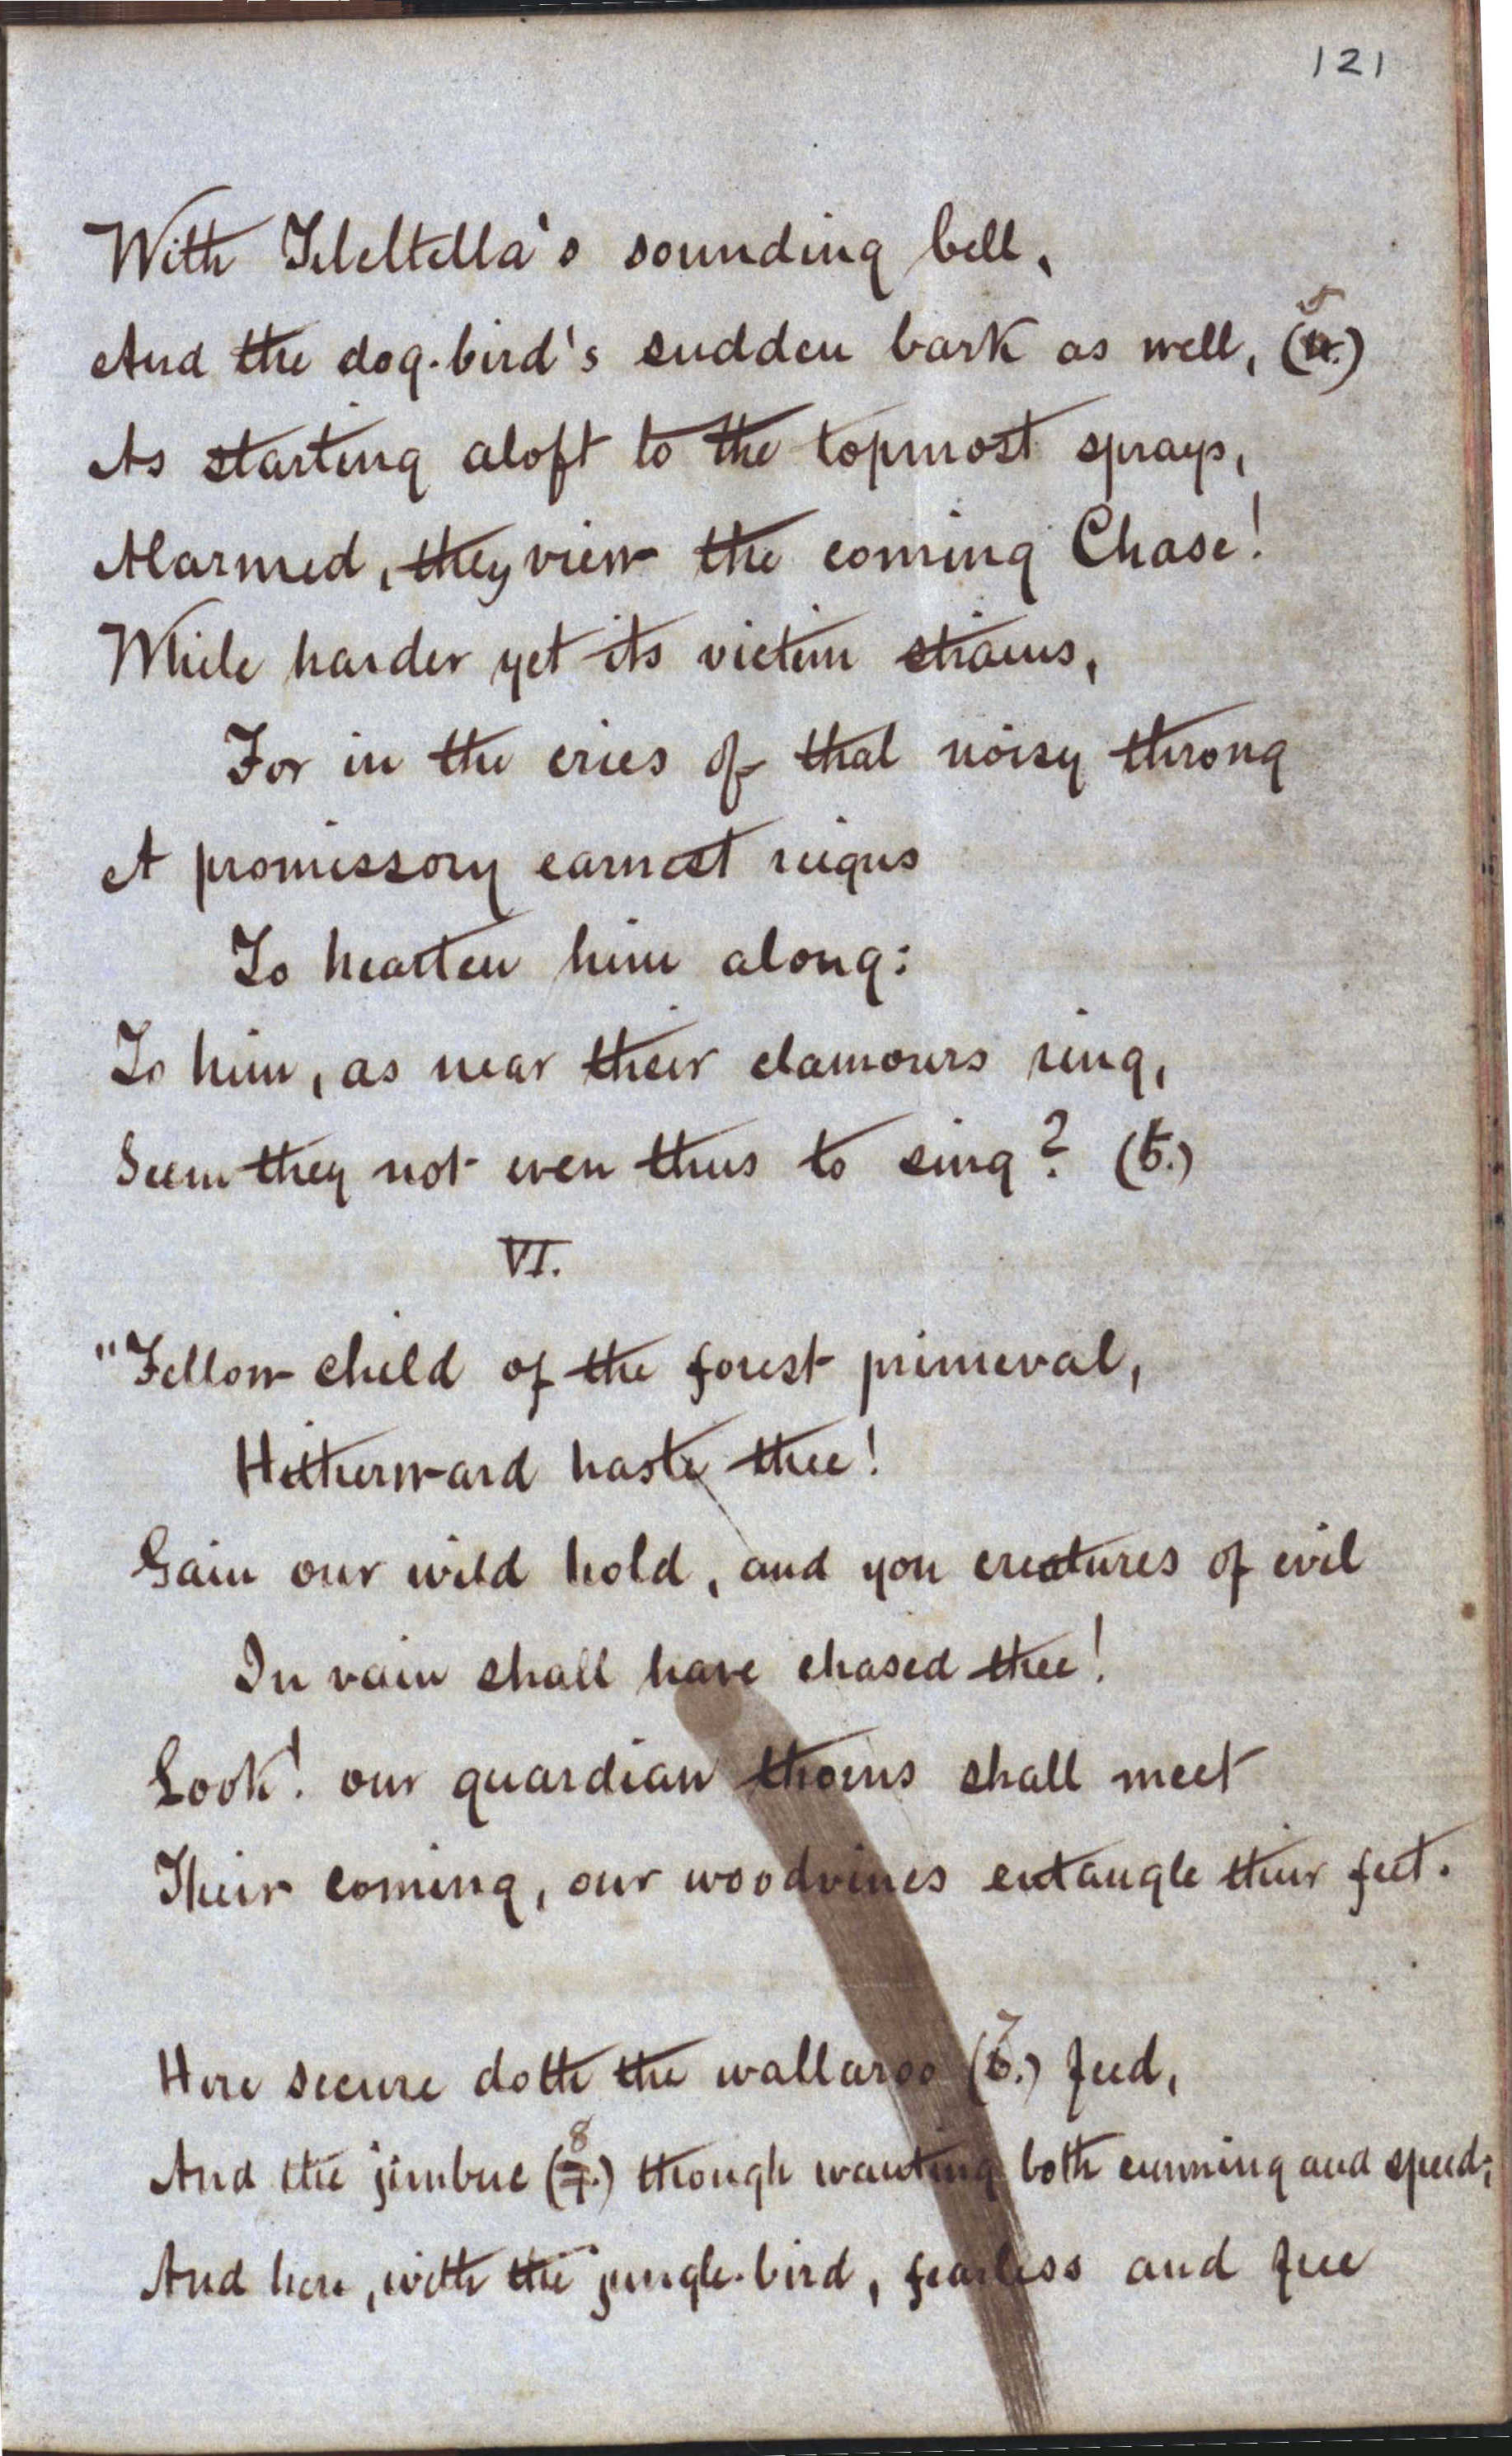 121
With Teleltella's sounding bell,
And the dog-bird's sudden bark as well, (5.)
As starting aloft to the topmost sprays,
Alarmed, they view the coming Chase!
While harder yet its victim strains,
For in the cries of that noisy throng
A promissory earnest reigns
To hearten him along:
To him, as near their clamours ring,
Seem they not even thus to sing? (6.)
VI.
"Fellow child of the forest primeval,
Hitherward haste thee!
Gain our wild hold, and yon creatures of evil
In vain shall have chased thee!
Look! our guardian thorns shall meet
Their coming, our woodvines entangle their feet.
Here secure doth the wallaroo (7.) feed,
And the jimbuc (8.) though wanting both cunning and speed;
And here, with the jungle-bird, fearless and free